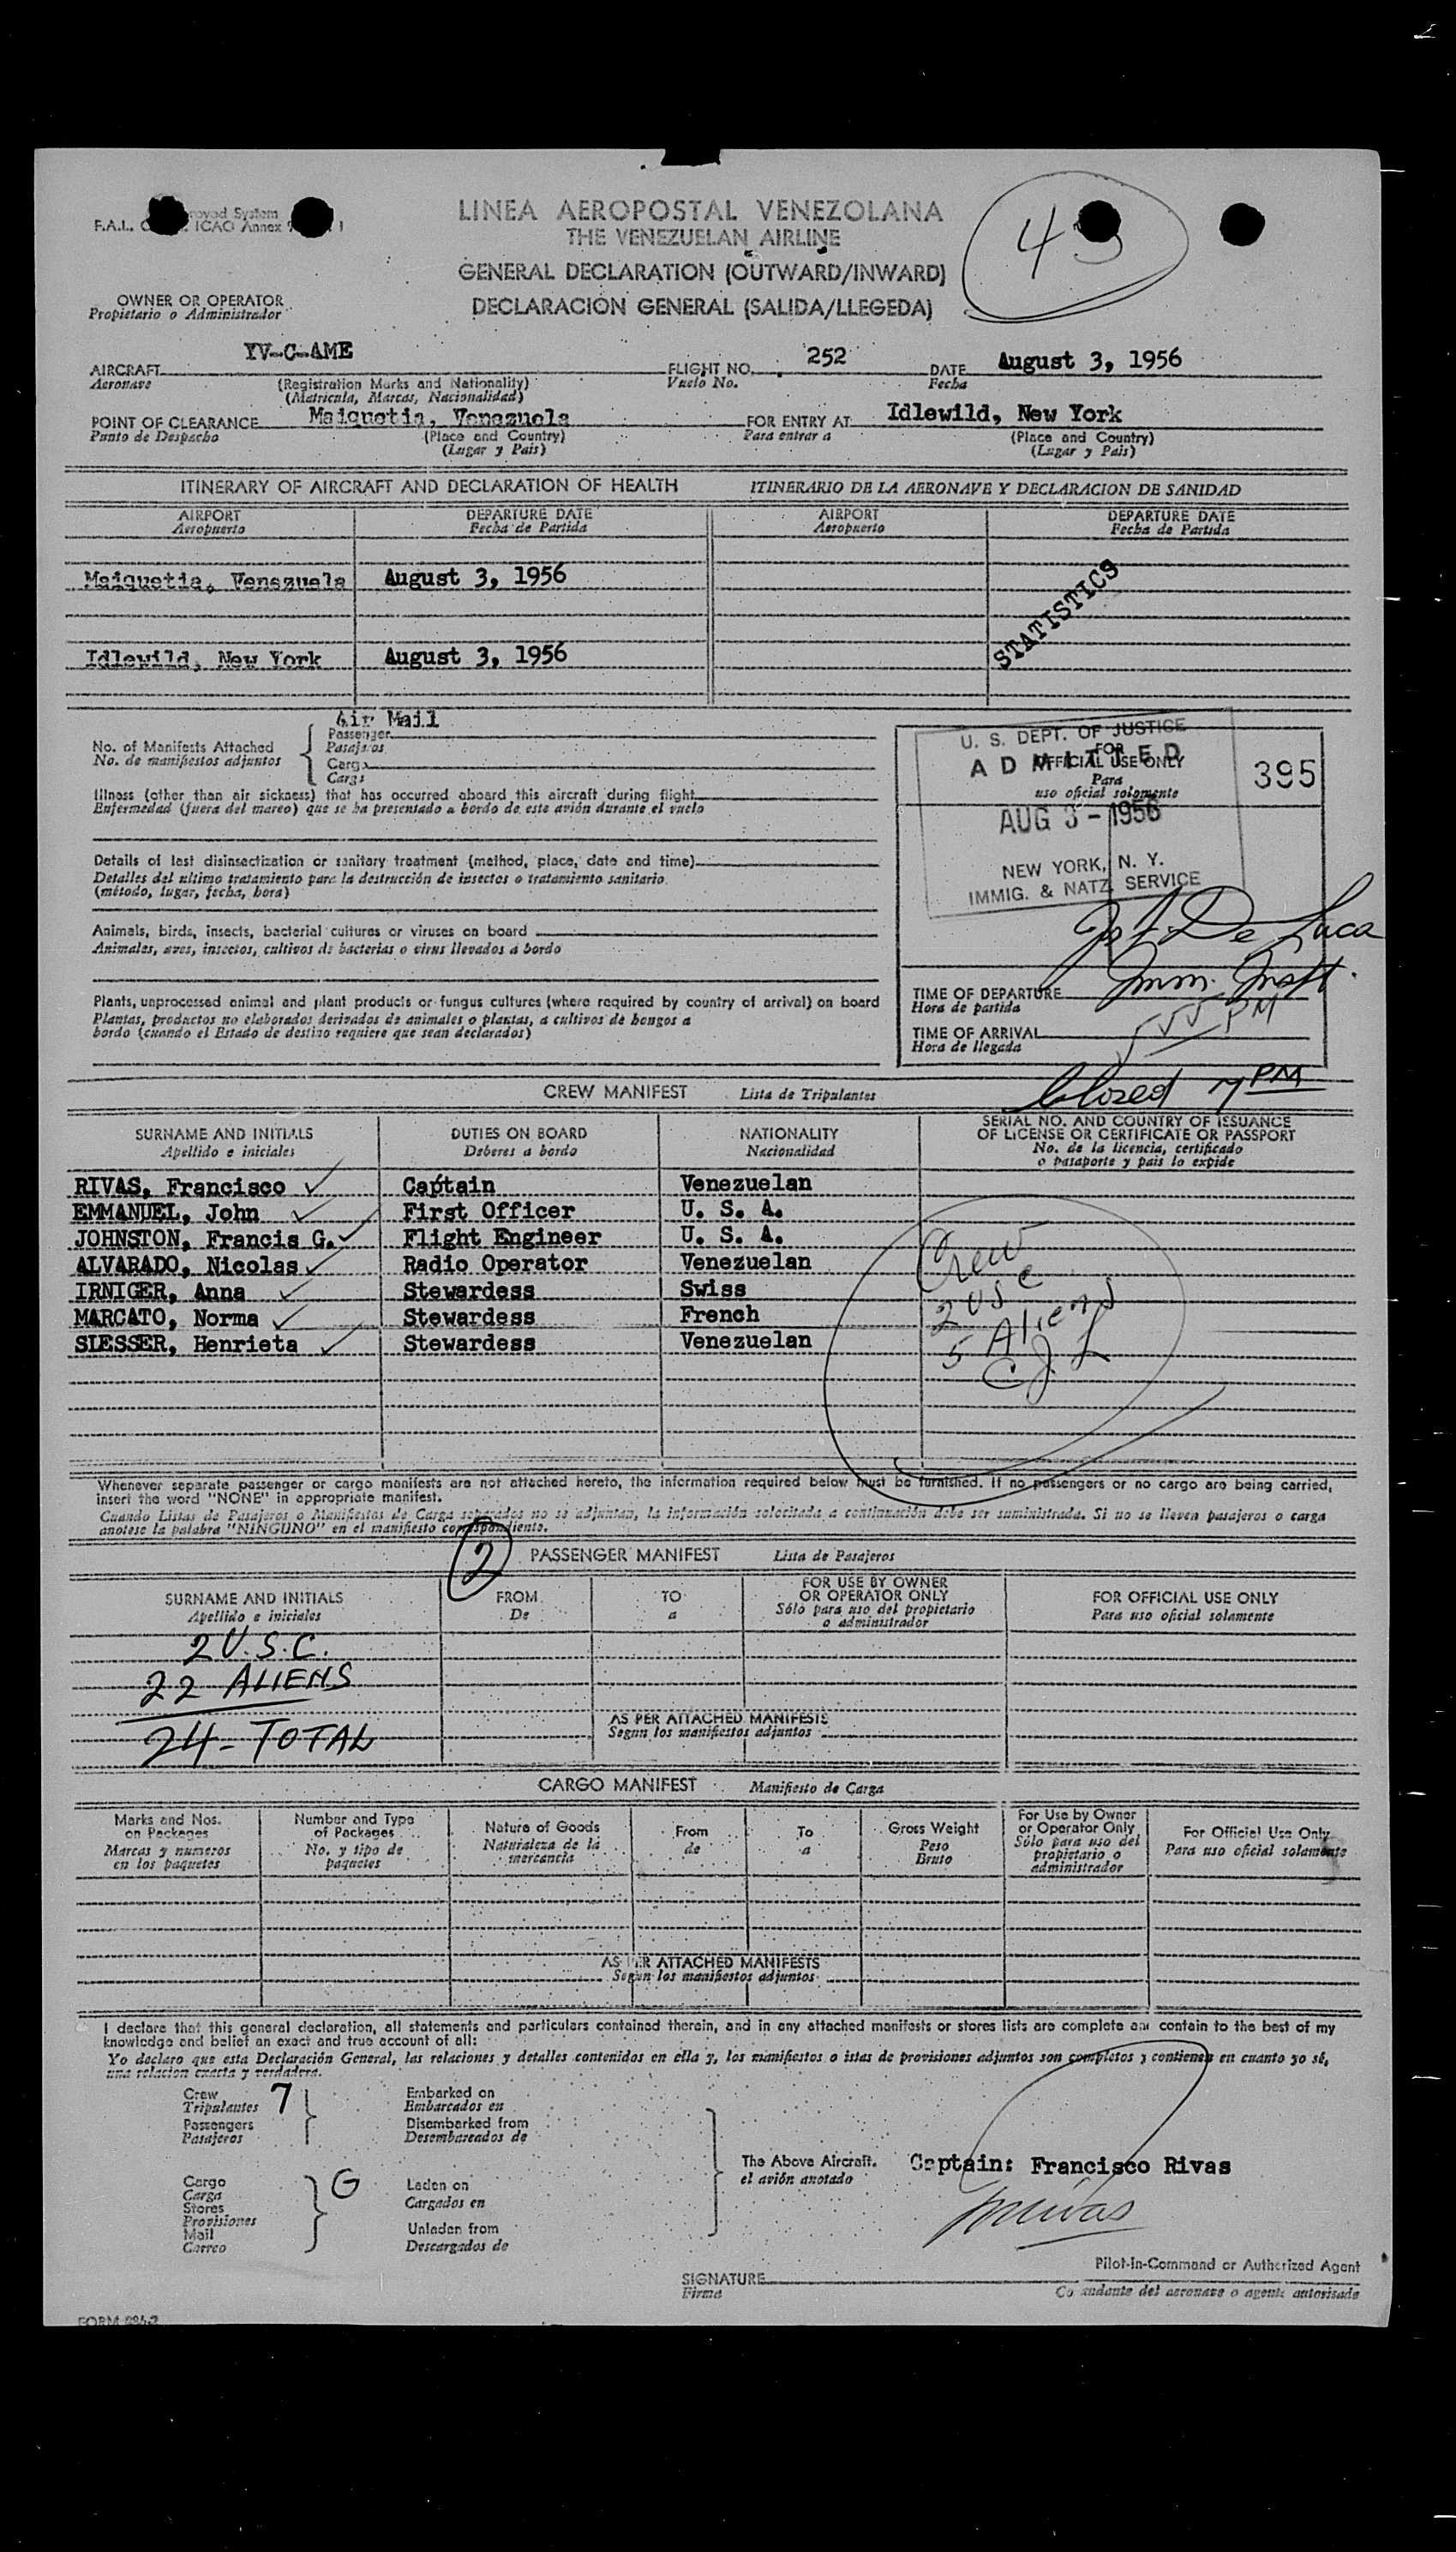 LINEA AEROPOSTAL VENEZOLANA
THE VENEZUELAN AIRLINE
GENERAL DECLARATION (OUTWARD/INWARD)
DECLARACIÓN GENERAL (SALIDA/LLEGEDA)
roved System
F.A.L. ICAO Annex
OWNER OR OPERATOR
Propietario o Administrador
AIRCRAFT YV-C-AME FLIGHT NO. 252 DATE August 3, 1956
Aeronave (Registration Marks and Nationality) Vuelo No. Fecha
(Matricula, Marcas, Nacionalidad)
POINT OF CLEARANCE Maiquetia, Venezuela FOR ENTRY AT Idlewild, New York
Punto de Despacho (Place and Country) Para entrar a (Place and Country)
(Lugar y Pais) (Lugar y Pais)
ITINERARY OF AIRCRAFT AND DECLARATION OF HEALTH ITINERARIO DE LA AERONAVE Y DECLARACION DE SANIDAD
AIRPORT DEPARTURE DATE AIRPORT DEPARTURE DATE
Aeropuerto Fecha de Partida Aeropuerto Fecha de Partida
Maiquetia, Venezuela August 3, 1956
STATISTICS
Idlewild, New York August 3, 1956
Air Mail
No. of Manifests Attached Passenger
No. de manifiestos adjuntos Pasajeros
Cargo
Carga
Illness (other than air sickness) that has occurred aboard this aircraft during flight
Enfermedad (fuera del mareo) que se ha presentado a bordo de este avión durante el vuelo
Details of last disinsectization or sanitary treatment (method, place, date and time)
Detalles del ultimo tratamiento para la destrucción de insectos o tratamiento sanitario
(método, lugar, fecha, hora)
Animals, birds, insects, bacterial cultures or viruses on board
Animales, aves, insectos, cultivos de bacterias o virus llevados a bordo
Plants, unprocessed animal and plant products or fungus cultures (where required by country of arrival) on board
Plantas, productos no elaborados derivados de animales o plantas, a cultivos de hongos a
bordo (cuando el Estado de destino requiere que sean declarados)
U. S. DEPT. OF JUSTICE
ADMITTED
FOR
OFFICIAL USE ONLY
Para
uso oficial solamente
395
AUG 3 - 1956
NEW YORK, N. Y.
IMMIG. & NATZ. SERVICE
De Luca
Imm. Inspt.
TIME OF DEPARTURE
Hora de partida
TIME OF ARRIVAL 555 PM
Hora de llegada
Closed 7 PM
CREW MANIFEST Lista de Tripulantes
SURNAME AND INITIALS DUTIES ON BOARD NATIONALITY SERIAL NO. AND COUNTRY OF ISSUANCE
OF LICENSE OR CERTIFICATE OR PASSPORT
Apellido e iniciales Deberes a bordo Nacionalidad No. de la licencia, certificado
o pasaporte y pais lo expide
RIVAS, Francisco Captain Venezuelan
EMMANUEL, John First Officer U. S. A.
JOHNSTON, Francis G. Flight Engineer U. S. A.
ALVARADO, Nicolas Radio Operator Venezuelan
IRNIGER, Anna Stewardess Swiss
MARCATO, Norma Stewardess French
SLESSER, Henrieta Stewardess Venezuelan
Crew
2 USC
5 Aliens
Whenever separate passenger or cargo manifests are not attached hereto, the information required below must be furnished. If no passengers or no cargo are being carried,
insert the word "NONE" in appropriate manifest.
Cuando Listas de Pasajeros o Manifiestos de Carga separados no se adjuntan, la información solicitada a continuación debe ser suministrada. Si no se lleven pasajeros o carga
anotese la palabra "NINGUNO" en el manifiesto correspondiente.
2 PASSENGER MANIFEST Lista de Pasajeros
SURNAME AND INITIALS FROM TO FOR USE BY OWNER
OR OPERATOR ONLY FOR OFFICIAL USE ONLY
Apellido e iniciales De a Sólo para uso del propietario
o administrador Para uso oficial solamente
2 U.S.C.
22 ALIENS
24 - TOTAL
AS PER ATTACHED MANIFESTS
Segun los manifiestos adjuntos
CARGO MANIFEST Manifiesto de Carga
Marks and Nos.
on Packages
Marcas y numeros
en los paquetes
Number and Type
of Packages
No. y tipo de
paquetes
Nature of Goods
Naturaleza de la
mercancia
From
de
To
a
Gross Weight
Peso
Bruto
For Use by Owner
or Operator Only
Sólo para uso del
propietario o
administrador
For Official Use Only
Para uso oficial solamente
AS PER ATTACHED MANIFESTS
Segun los manifiestos adjuntos
I declare that this general declaration, all statements and particulars contained therein, and in any attached manifests or stores lists are complete and contain to the best of my
knowledge and belief an exact and true account of all:
Yo declaro que esta Declaración General, las relaciones y detalles contenidos en ella y, los manifiestos o istas de provisiones adjuntos son completos y contienen en cuanto yo sé,
una relacion exacta y verdadera.
Crew 7 Embarked on
Tripulantes Embarcados en
Passengers Disembarked from
Pasajeros Desembarcados de
The Above Aircraft. Captain: Francisco Rivas
el avión anotado
Cargo G Laden on
Carga Cargados en
Stores
Provisiones
Mail Unladen from
Correo Descargados de
Pilot-in-Command or Authorized Agent
SIGNATURE
Firma Co andante del aeronave o agente autorisado
FORM